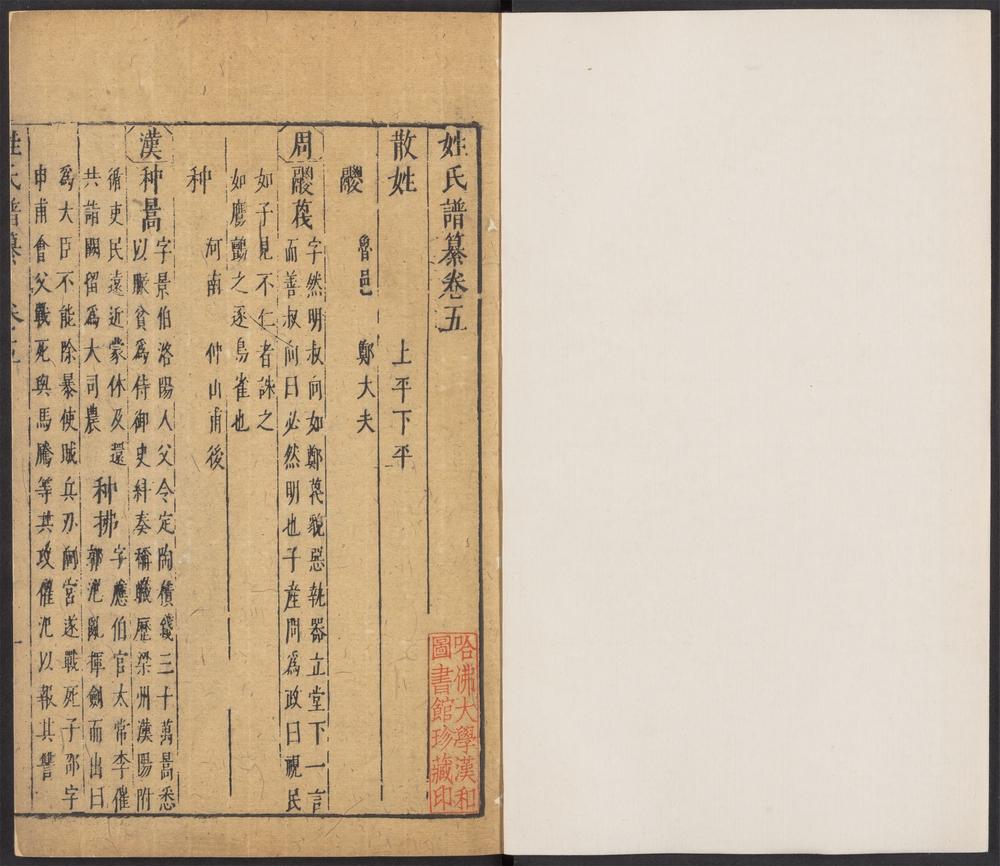 姓氏譜纂卷五
散姓　上平下平
鬷　魯邑　鄭大夫
周　鬷蔑
字然明叔向如鄭蔑貌惡執器立堂下一言
而善叔向曰必然明也子產問為政曰視民
如子見不仁者誅之
如鷹鸇之逐鳥雀也
种　河南　仲山甫後
漢　种暠
字景伯洛陽人父令定陶積錢三十萬暠悉
以賑貧為侍御史糾奏稱職歷梁州漢陽附
循吏民遠近蒙休及還
共詣闕留為大司農
种拂
字應伯官太常李傕
郭汜亂揮劍而出曰
為大臣不能除暴使賊兵刃向宮遂戰死子邵字
申甫會父戰死與馬騰等共攻傕汜以報其讐
姓氏譜纂　卷五　一
哈佛大學漢和
圖書館珍藏印